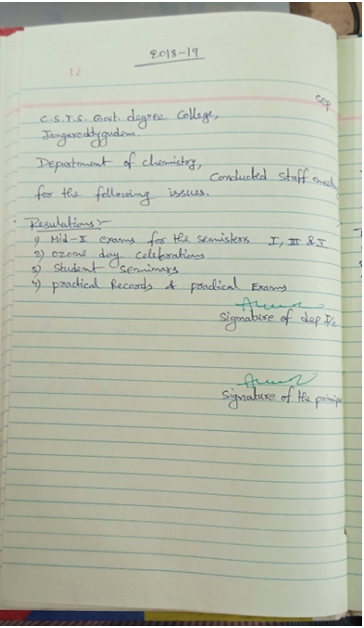 2018-19
12
Sep
C.S.T.S. Govt. degree College,
Jangareddygudem.
Department of chemistry,
Conducted Staff meet
for the following issues.
Resulations:-
1) Mid-I exams for the semisters I, III & V
2) ozone day celebrations
3) Student Seminars
4) practical Records & practical Exams
Signature of dep I/c
Signature of the princip